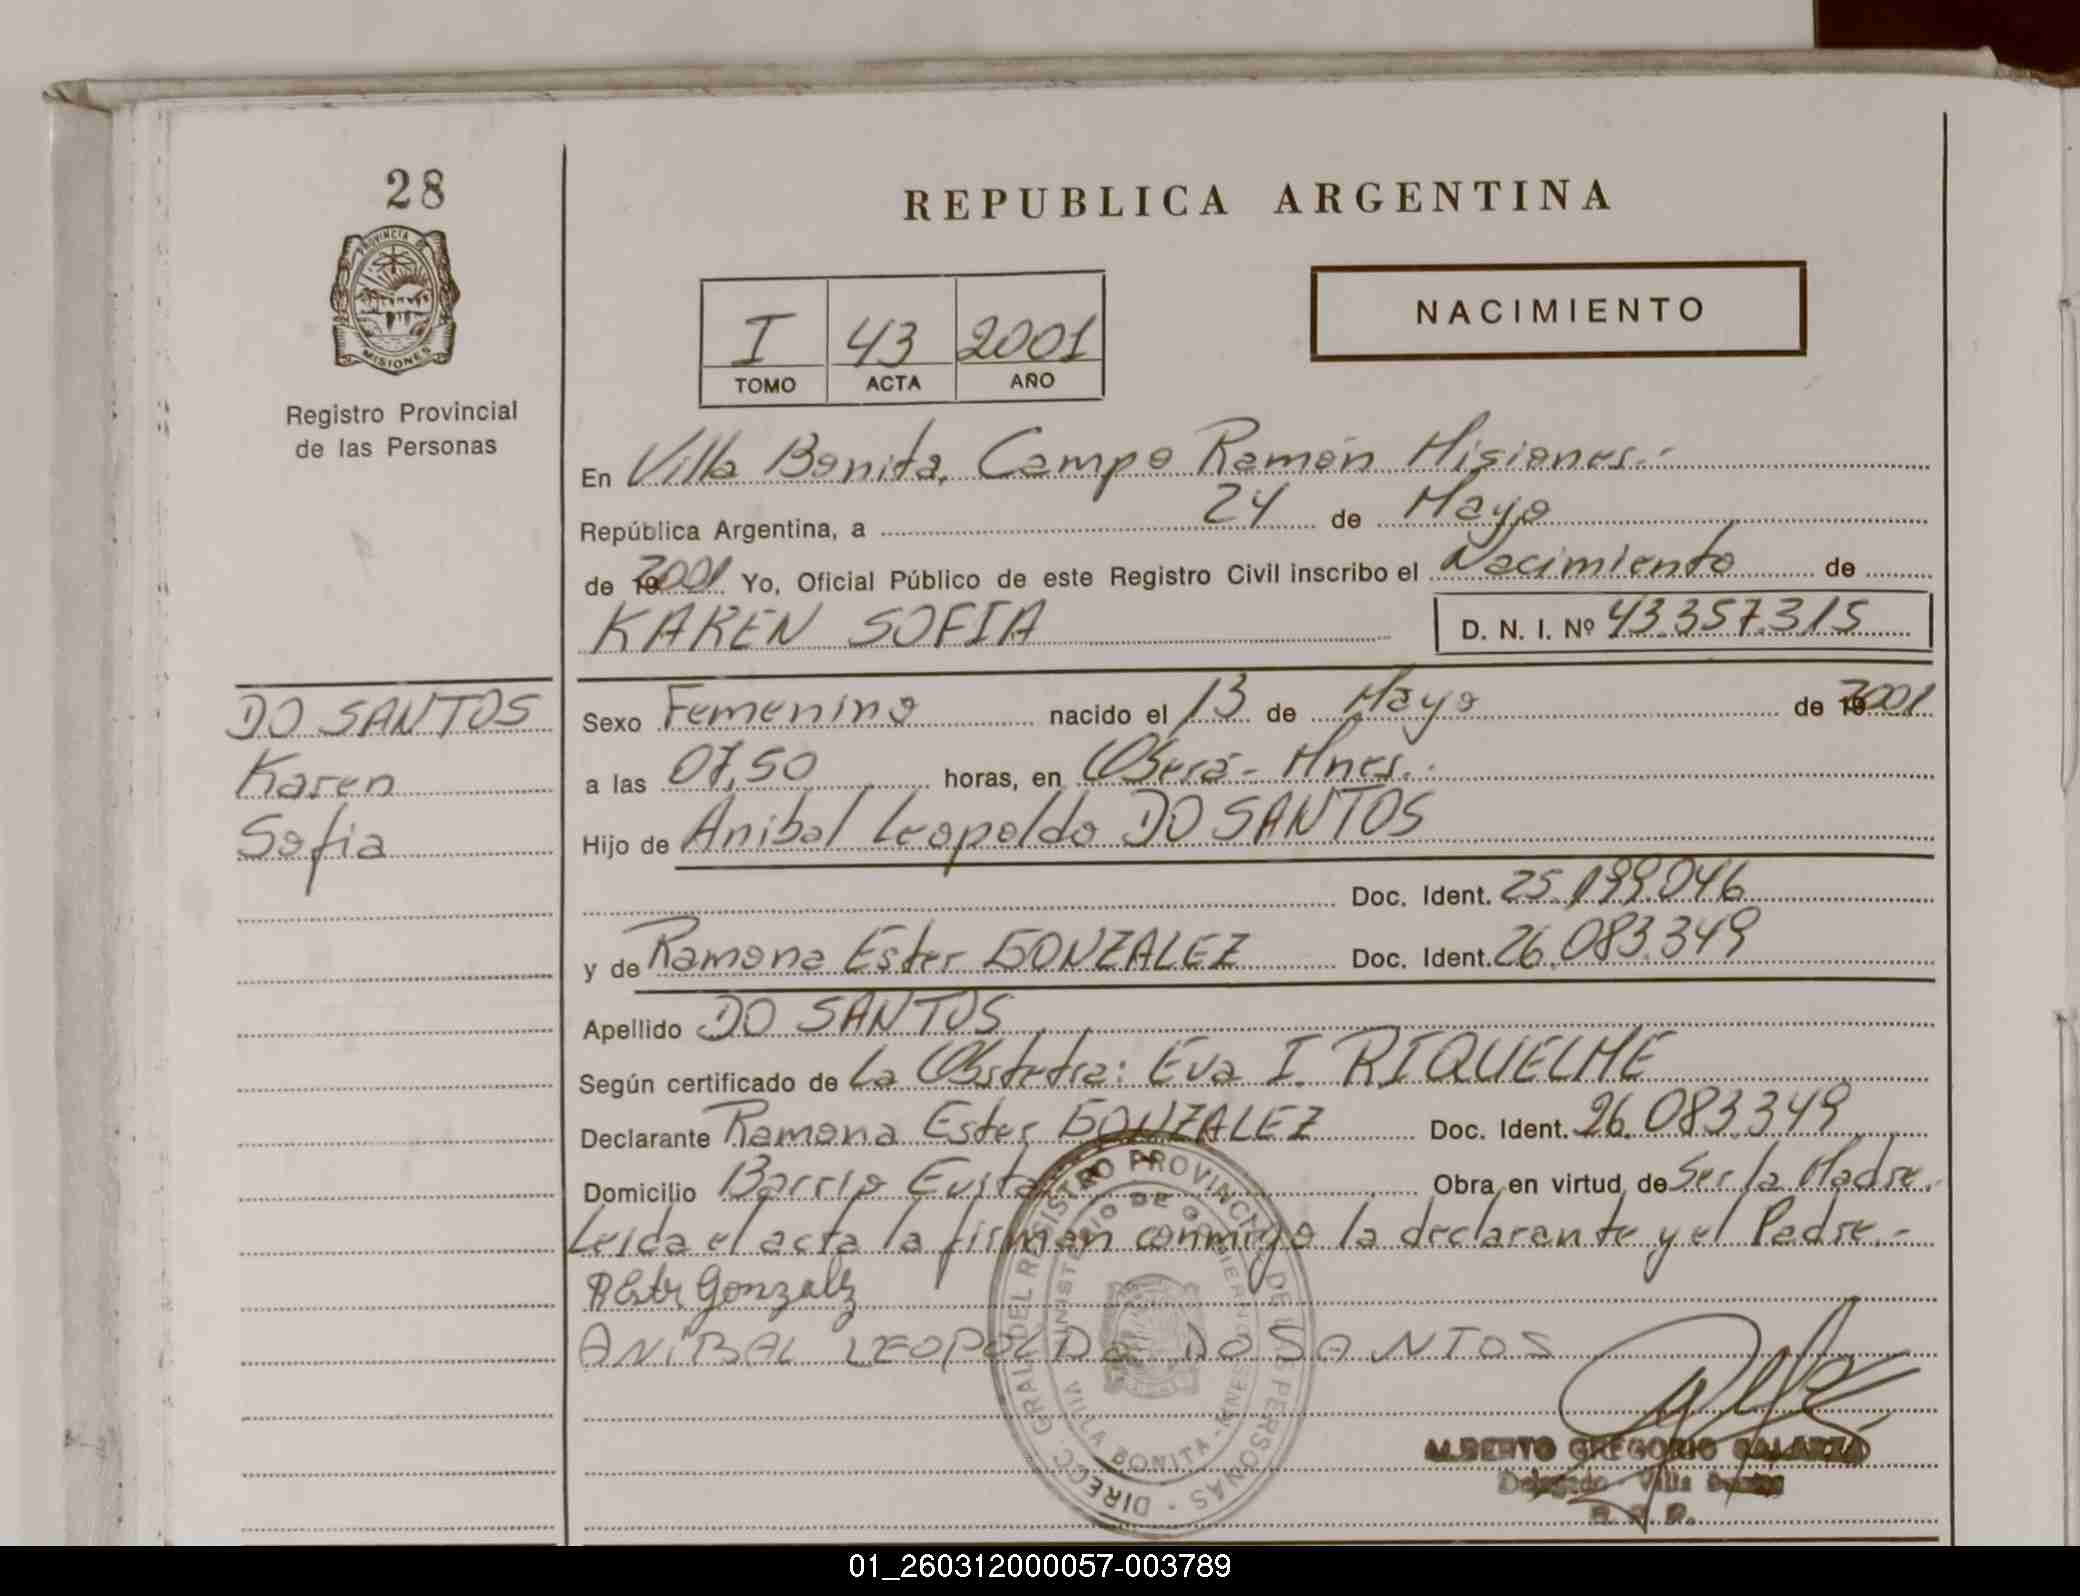 28
PROVINCIA DE
MISIONES
Registro Provincial
de las Personas
REPUBLICA ARGENTINA
I 43 2001
TOMO ACTA AÑO
NACIMIENTO
En Villa Bonita, Campo Ramón Misiones.-
República Argentina, a 24 de Mayo
de 2001 Yo, Oficial Público de este Registro Civil inscribo el Nacimiento de
KAREN SOFIA D. N. I. Nº 43.357.315
DO SANTOS
Karen
Sofia
Sexo Femenino nacido el 13 de Mayo de 2001
a las 07,50 horas, en Oberá - Mnes.-
Hijo de Anibal Leopoldo DO SANTOS
Doc. Ident. 25.199.046
y de Ramona Ester GONZALEZ Doc. Ident. 26.083.349
Apellido DO SANTOS
Según certificado de La Obstetra: Eva I. RIQUELME
Declarante Ramona Ester GONZALEZ Doc. Ident. 26.083.349
Domicilio Barrio Evita Obra en virtud de Ser la Madre.
Leida el acta la firman conmigo la declarante y el Padre.-
REstr Gonzalz
ANIBAL LEOPOLDO DO SANTOS
DIRECC. GRAL DEL REGISTRO PROVINCIAL DE LAS PERSONAS
MINISTERIO DE GOBIERNO
VILLA BONITA - MNES
ALBERTO GREGORIO GALARZA
Delegado Villa Bonita
R. P. P.
01_260312000057-003789